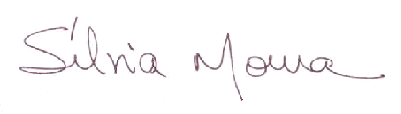 Sílvia Moura